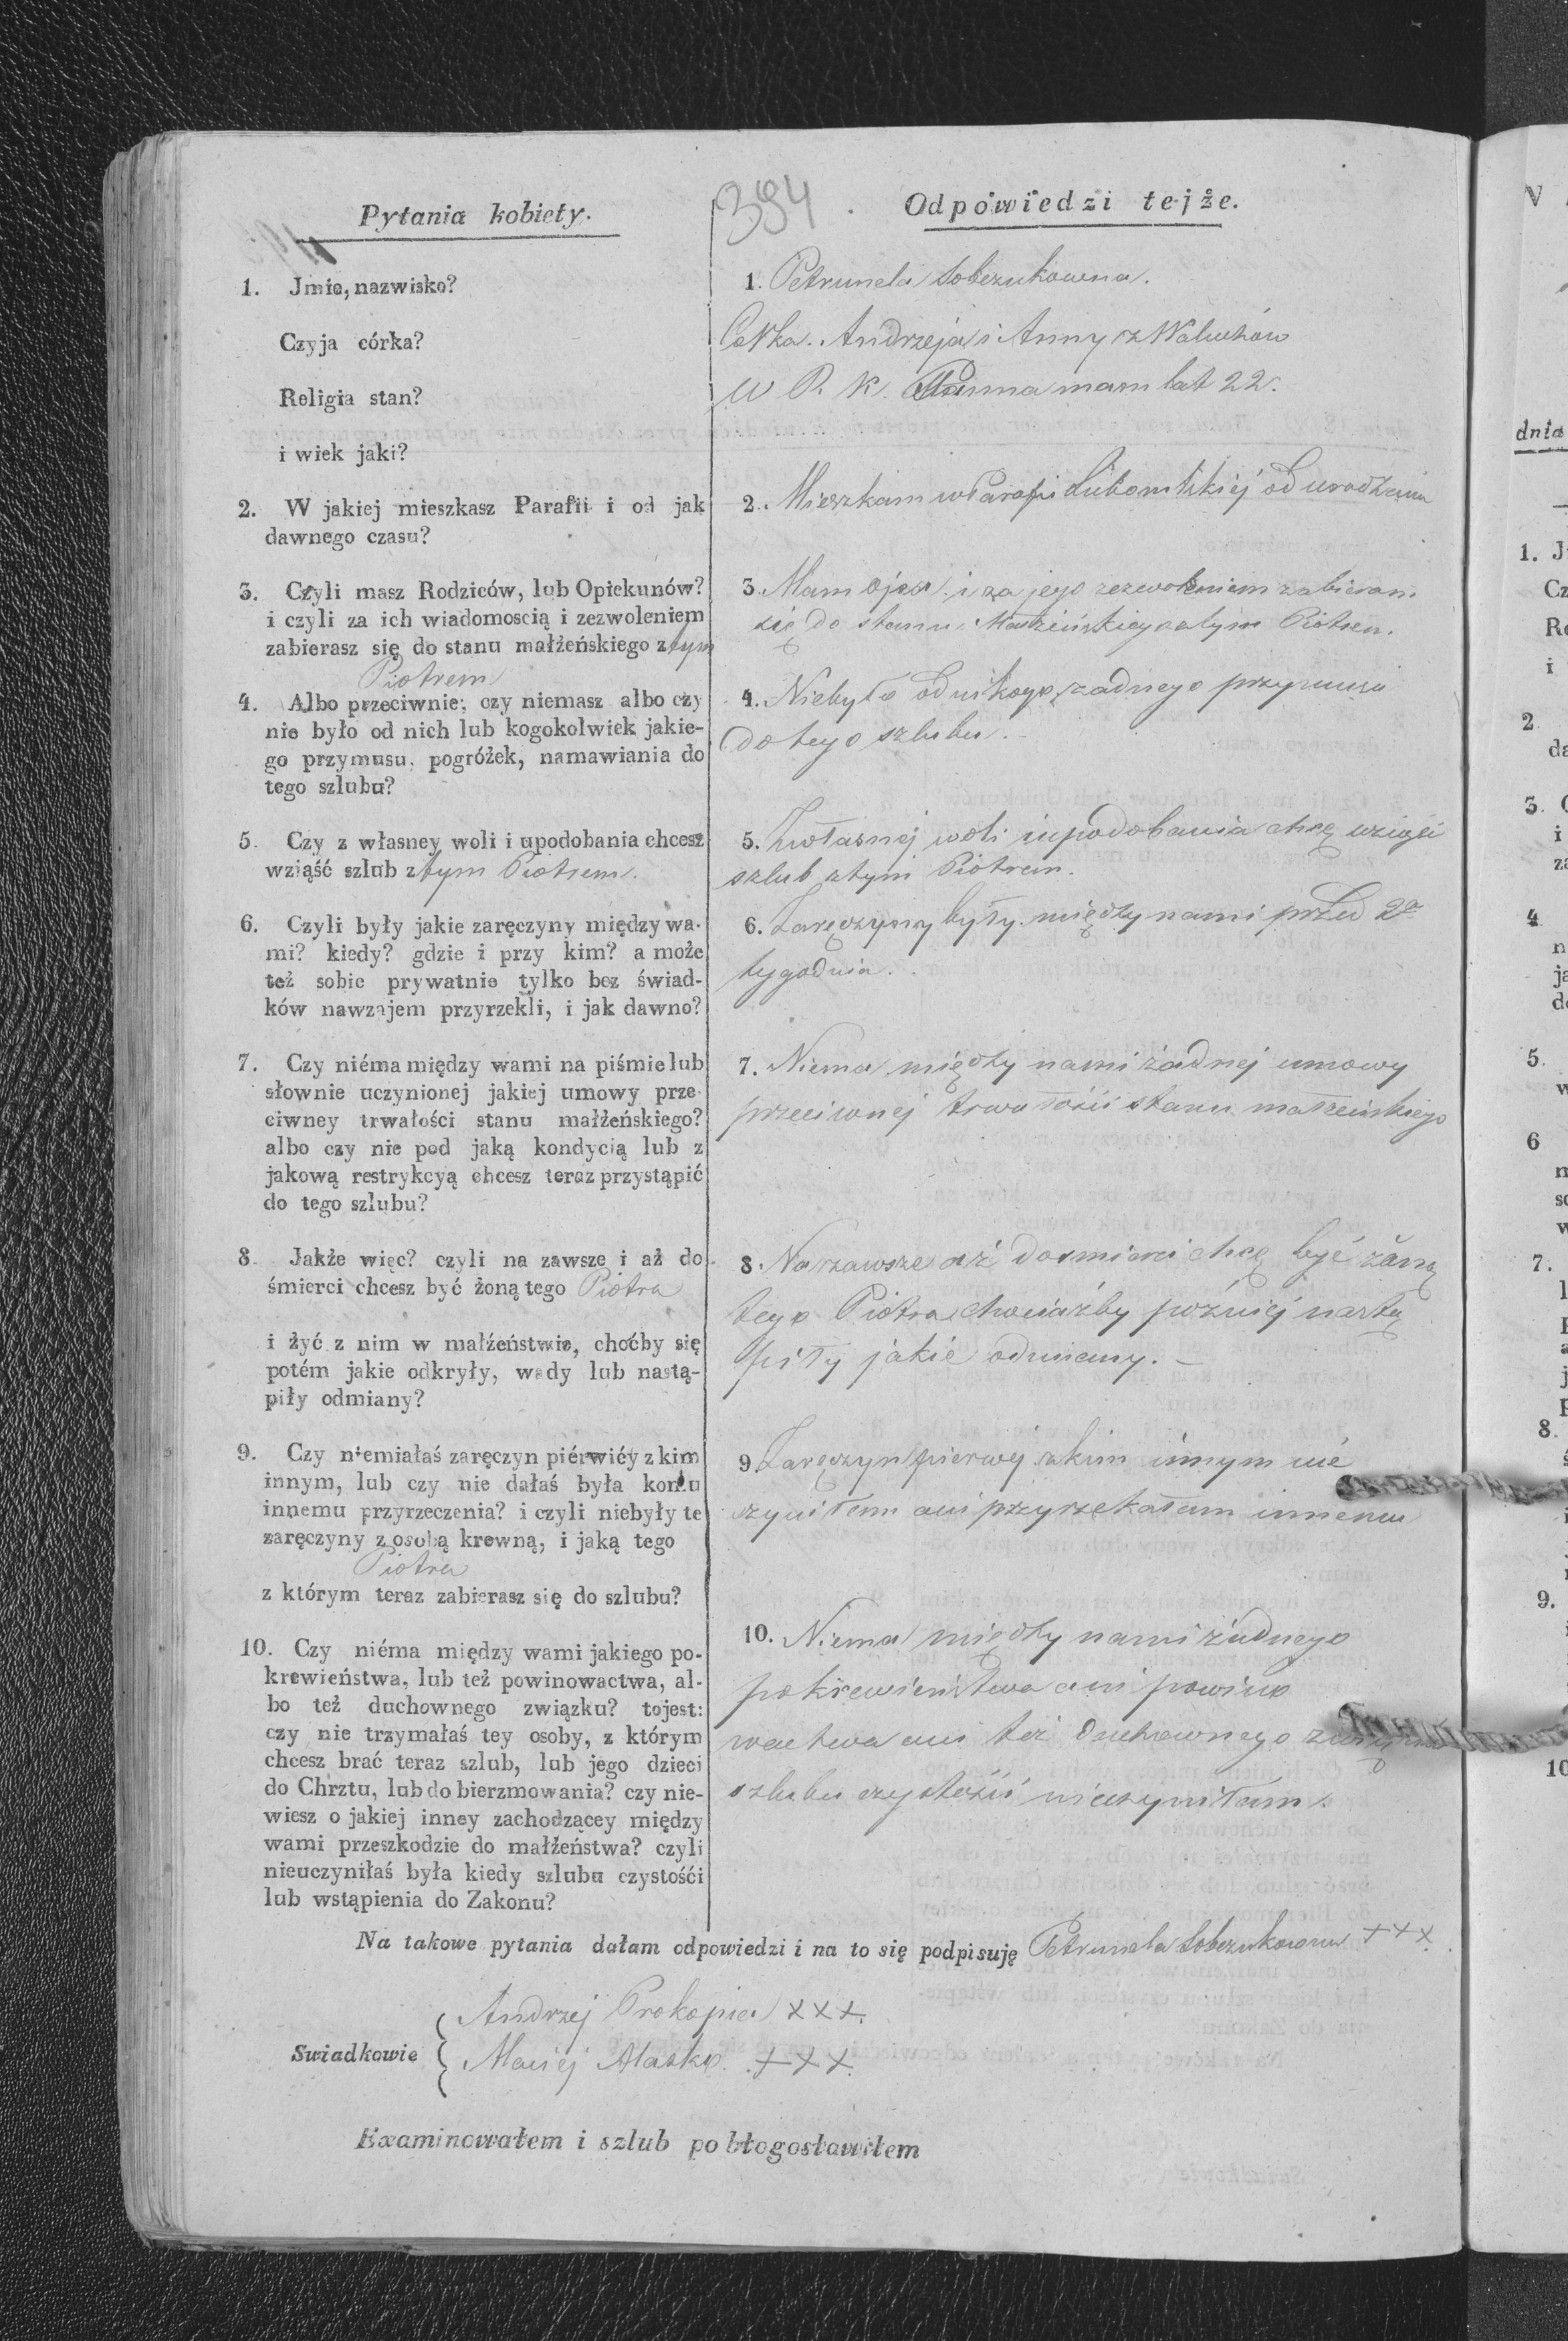 394
Pytania kobiety.
1. Jmie, nazwisko?
Czyja córka?
Religia stan?
i wiek jaki?
2. W jakiej mieszkasz Parafii i od jak
dawnego czasu?
3. Czyli masz Rodziców, lub Opiekunów?
i czyli za ich wiadomoscią i zezwoleniem
zabierasz się do stanu małżeńskiego z tym
Piotrem
4. Albo przeciwnie; czy niemasz albo czy
nie było od nich lub kogokolwiek jakie-
go przymusu, pogróżek, namawiania do
tego szlubu?
5. Czy z własney woli i upodobania chcesz
wziąść szlub z tym Piotrem.
6. Czyli były jakie zaręczyny między wa-
mi? kiedy? gdzie i przy kim? a może
też sobie prywatnie tylko bez świad-
ków nawzajem przyrzekli, i jak dawno?
7. Czy niéma między wami na piśmie lub
słownie uczynionej jakiej umowy prze-
ciwney trwałości stanu małżeńskiego?
albo czy nie pod jaką kondycią lub z
jakową restrykcyą chcesz teraz przystąpić
do tego szlubu?
8. Jakże więc? czyli na zawsze i aż do
śmierci chcesz być żoną tego Piotra
i żyć z nim w małżeństwie, choćby się
potém jakie odkryły, wady lub nastą-
piły odmiany?
9. Czy niemiałaś zaręczyn piérwiéy z kim
innym, lub czy nie dałaś była komu
innemu przyrzeczenia? i czyli niebyły te
zaręczyny z osobą krewną, i jaką tego
Piotra
z którym teraz zabierasz się do szlubu?
10. Czy niéma między wami jakiego po-
krewieństwa, lub też powinowactwa, al-
bo też duchownego związku? tojest:
czy nie trzymałaś tey osoby, z którym
chcesz brać teraz szlub, lub jego dzieci
do Chrztu, lub do bierzmowania? czy nie-
wiesz o jakiej inney zachodzącey między
wami przeszkodzie do małżeństwa? czyli
nieuczyniłaś była kiedy szlubu czystośći
lub wstąpienia do Zakonu?
Odpowiedzi tejże.
1. Petrunela Sobczukowna.
Corka. Andrzeja i Anny z
W R. K. Panna mam lat 22.
2. Mieszkam w Parafii Lubomlskiéj od urodzenia
3. Mam ojca i za jego zezwoleniem zabieram
się do stanu Małżeńskiego z tym Piotrem.
4. Niebyło od nikogo żadnego przymusu
do tego szlubu. -
5. Zwłasnéj woli i upodobania chcę wziąść
szlub z tym Piotrem.
6. Zaręczyny były między nami przed 2a
tygodnia.
7. Niema między nami żadnej umowy
przeciwnej trwałości stanu małżeńskiego
8. Na zawsze aż do smierci chcę być żóną
tego Piotra chociażby poźniéj nastą
piły jakie odmiany. -
9. Zaręczyn pierwej z kim innym nié
czyniłem ani przyrzekałam innemu
10. Niema między nami żadnego
pokrewieństwa ani powino
wactwa ani też duchownego
szlubu czystości nieczyniłam.
Na takowe pytania dałam odpowiedzi i na to się podpisuję Petrunela Sobczukowna +++
Swiadkowie
Andrzej Prokopia xxx.
Maciej xxx.
Examinowałem i szlub pobłogosławiłem
dnia
1. J
2
3.
4
5.
6
7.
8.
9.
10